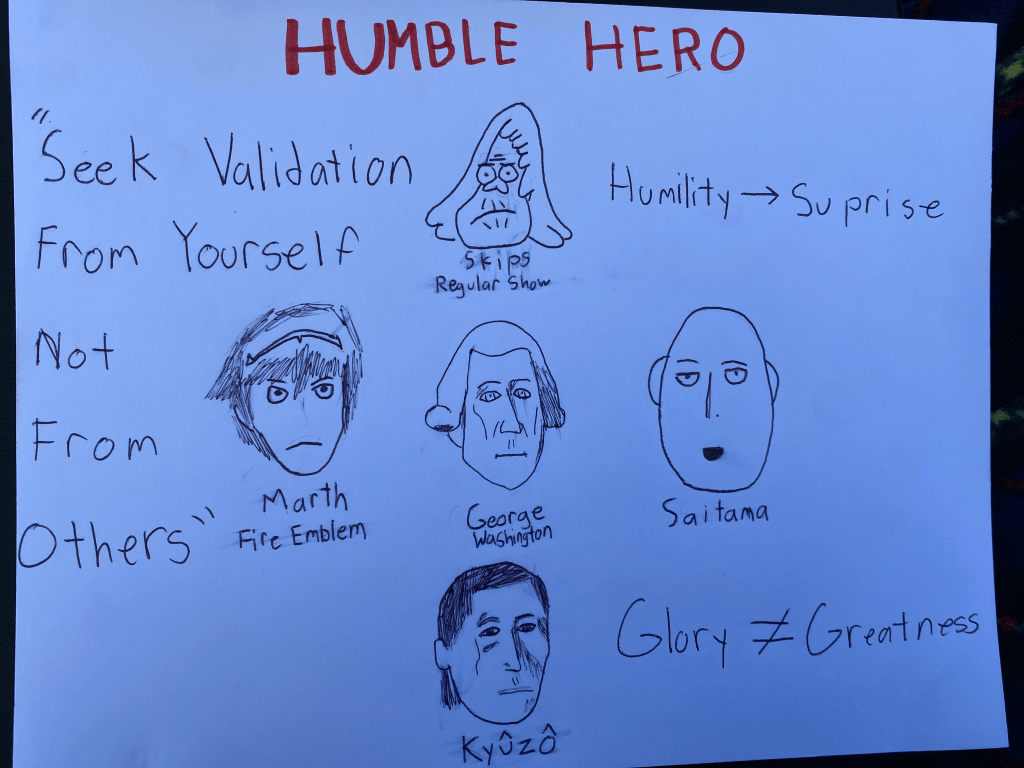 HUMBLE HERO
"Seek Validation
From Yourself
Not
From
Others"
Humility → Suprise
Skips
Regular Show
Marth
Fire Emblem
George
Washington
Saitama
Kyûzô
Glory ≠ Greatness